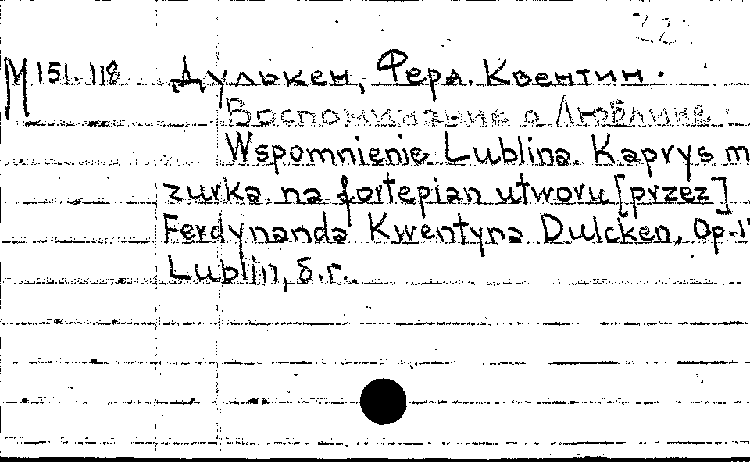 22
М 151.118 Дулькен, Ферд. Квентин.
Воспоминание о Люблине.
Wspomnienie Lublina. Kaprys m
zurka na fortepian utworu [przez]
Ferdynanda Kwentyna Dulcken, Op.1
Lublin, б.г.